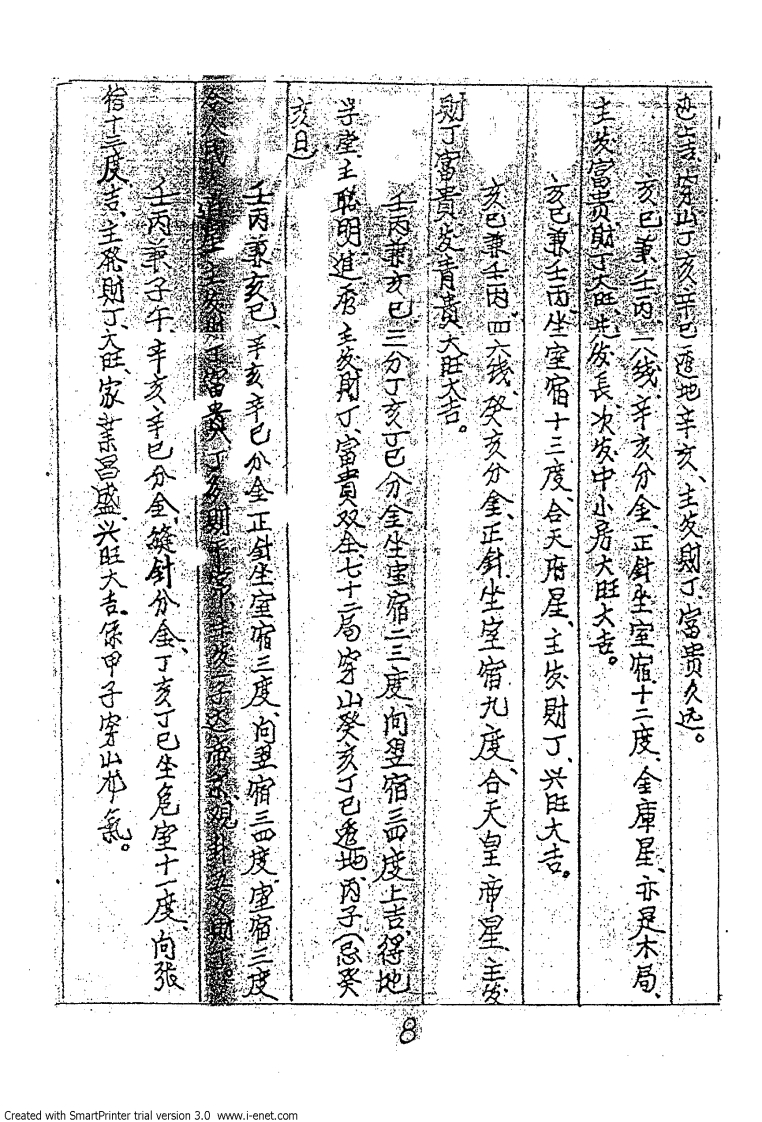 上吉、穿山丁亥、辛巳透地辛亥、主发財丁、富貴久远。
亥巳兼壬丙、一八线、辛亥分金、正針坐室宿十二度、金庫星、亦是木局、
主发富贵、財丁大旺、先发長、次发中小房大旺大吉。
亥巳兼壬丙坐室宿十三度、合天府星、主发財丁、兴旺大吉。
亥巳兼壬丙四六线、癸亥分金、正針坐室宿九度、合天皇帝星、主发
財丁富貴发青貴大旺大吉。
壬丙兼亥巳、三分丁亥丁巳分金坐室宿二三度、向翌宿三四度上吉、得地
学堂、主聪明進 主发財丁、富貴双全、七十二局穿山癸亥丁巳透地、丙子(忌癸
亥日)
壬丙兼亥巳、辛亥辛巳分金正針坐室宿三度、向翌宿三四度、室宿三度
富貴 丁
壬丙兼子午、辛亥辛巳分金、縫針分金、丁亥丁巳坐危室十一度、向張
宿十三度吉、主発財丁、大旺、家業昌盛、兴旺大吉。係甲子穿山 氣。
8
Created with SmartPrinter trial version 3.0 www.i-enet.com